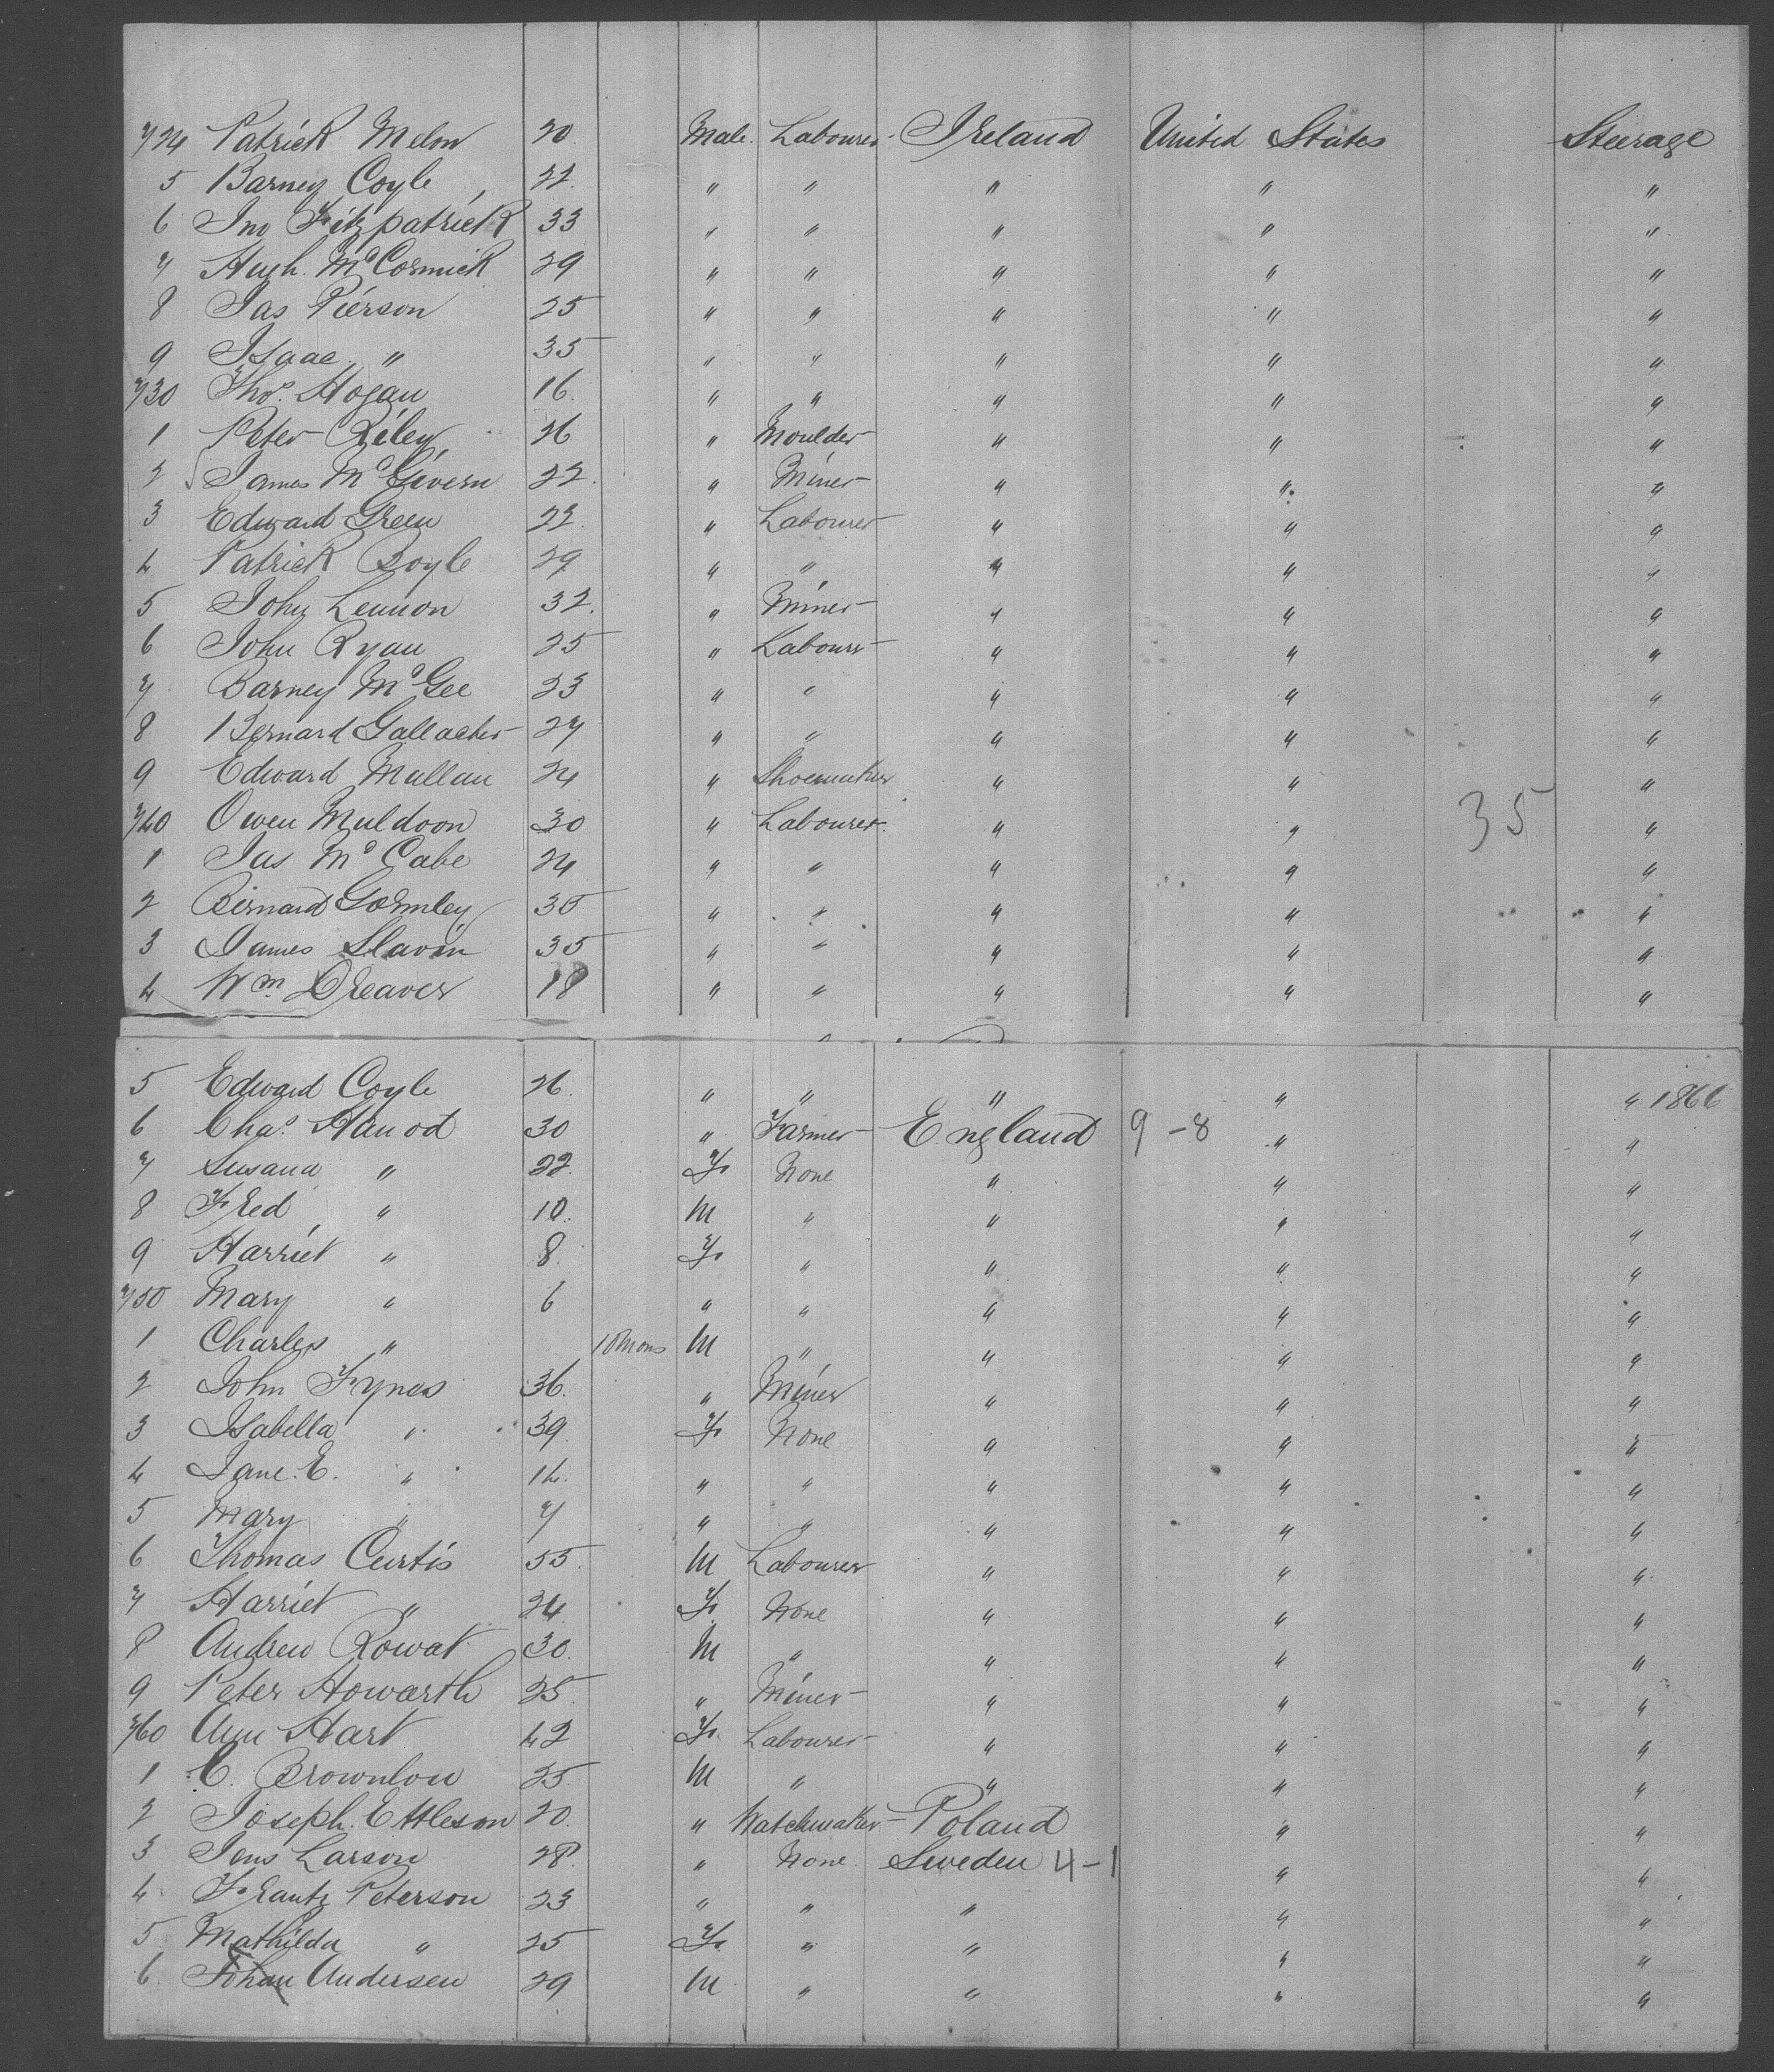 724 Patrick Melon 20 Male. Labourer Ireland United States Steerage
5 Barney Coyle 22. " " " " "
6 Jno Fitzpatrick 33 " " " " "
7 Hugh. McCormick 29 " " " " "
8 Jas Pierson 25 " " " " "
9 Isaac " 35 " " " " "
730 Thos. Hogan 16. " " " " "
1 Peter Riley 26 " Moulder " " "
2 James McGivern 22. " Miner " " "
3 Edward Green 22. " Labourer " " "
4 Patrick Boyle 29 " " " " "
5 John Lennon 32. " Miner " " "
6 John Ryan 25 " Labourer " " "
7 Barney McGee 23 " " " " "
8 Bernard Gallacher 27 " " " " "
9 Edward Mallan 24 " Shoemaker " " "
740 Owen Muldoon 30 " Labourer. " " 35 "
1 Jas McCabe 24 " " " " "
2 Bernard Gormley 30 " " " " "
3 James Slavin 35 " " " " "
4 Wm. Greaver 18 " " " " "
5 Edward Coyle 26. " " " " " 1866
6 Chas. Hanod 30 " Farmer England 9-8 " "
7 Susana " 22. F. None " " "
8 Fred " 10. M " " " "
9 Harriet " 8. F. " " " "
750 Mary " 6 " " " " "
1 Charles " 10 Mons M " " " "
2 John Fynes 36. " Miner " " "
3 Isabella " 39 F. None " " "
4 Jane. E. " 14. " " " " "
5 Mary " 7 " " " " "
6 Thomas Curtis 55. M Labourer " " "
7 Harriet " 24 F. None " " "
8 Andrew Rowat 30. M " " " "
9 Peter Howarth 25 " Miner " " "
760 Ann Hart 42 F. Labourer " " "
1 C. Brownlow 25. M " " " "
2 Joseph. Ettleson 20. " Watchmaker Poland " "
3 Jens Larson 28. " None. Sweden 4-1 " "
4 Frantz Peterson 23 " " " " "
5 Mathilda " 25 F. " " " "
6. Johan Andersen 29 M " " " "